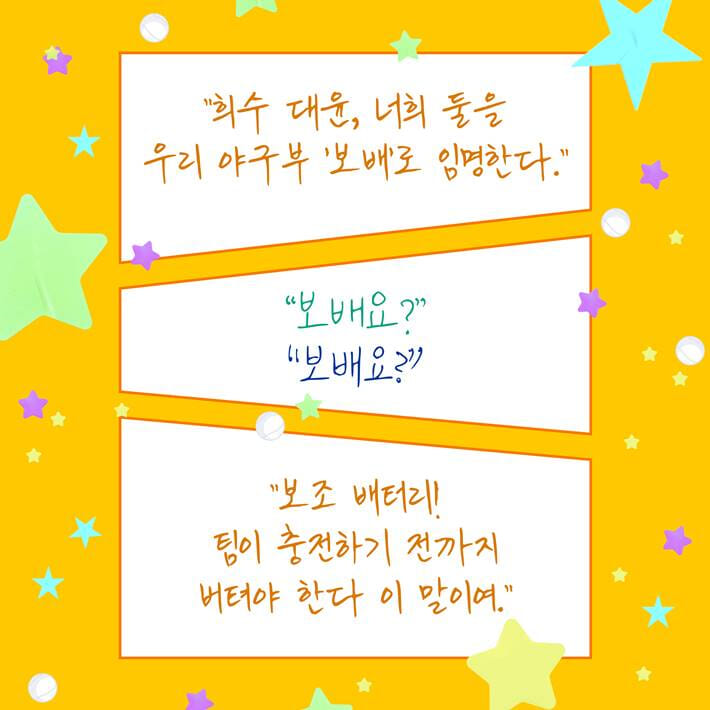 "희수 대윤, 너희 둘을
우리 야구부 '보배'로 임명한다."
"보배요?"
"보배요?"
"보조 배터리!
팀이 충전하기 전까지
버텨야 한다 이 말이여."